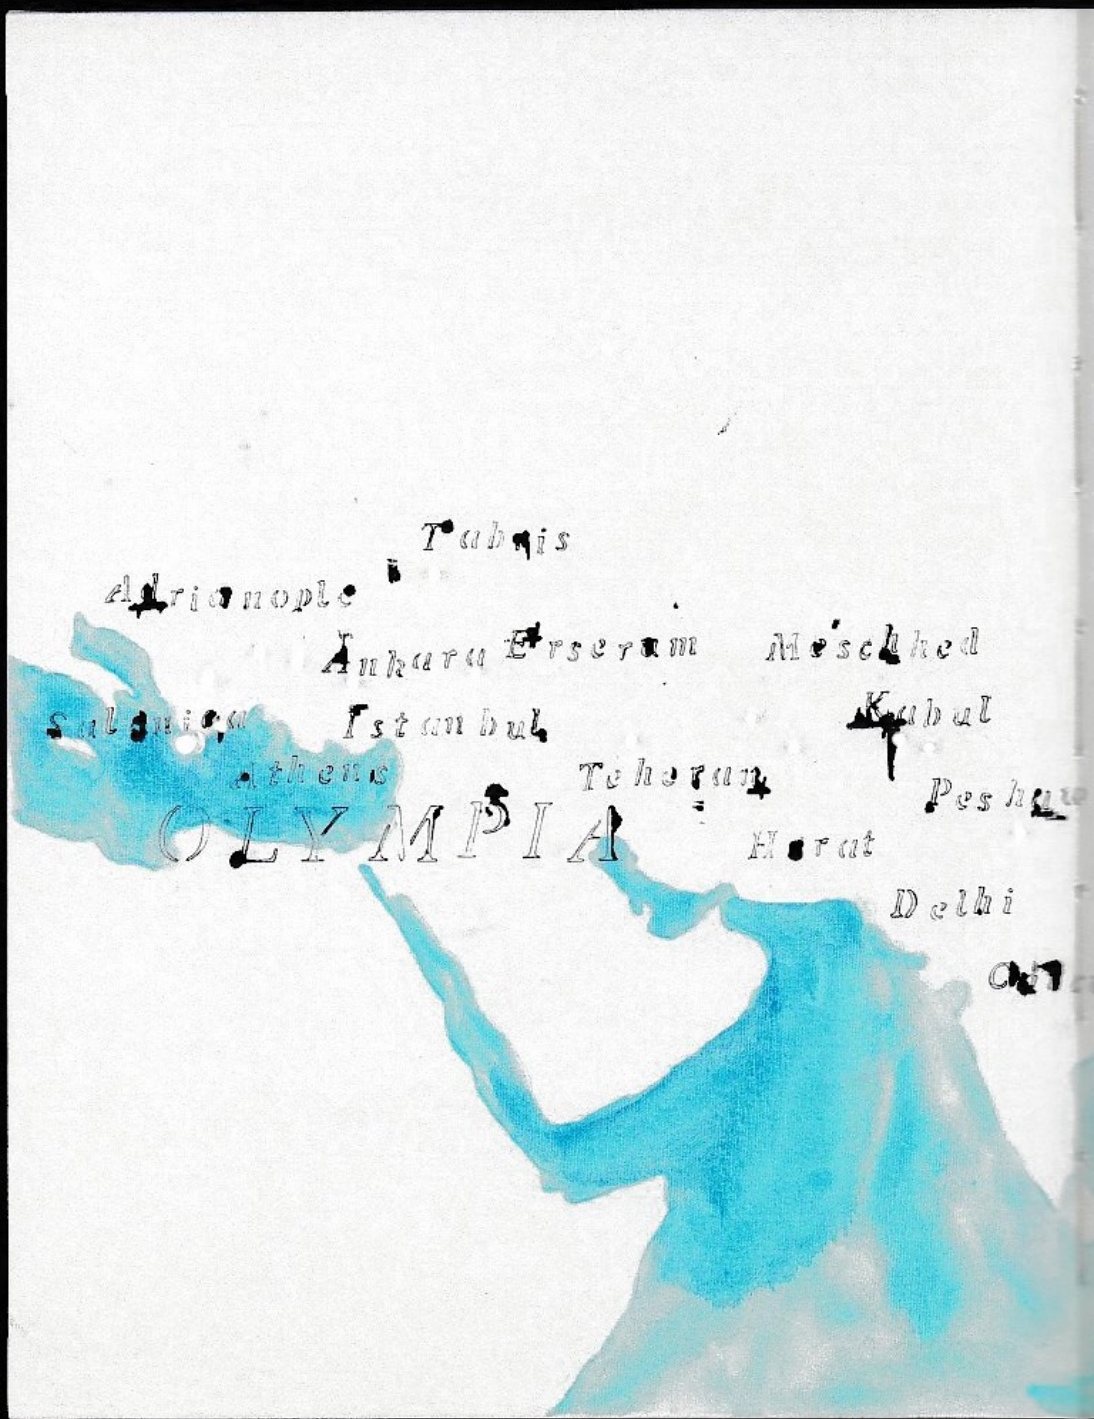 Tabris
Adrianople
Ankara Erserum Meschhed
Salonica Istanbul Kabul
Athens Teheran
OLYMPIA
Herat
Delhi